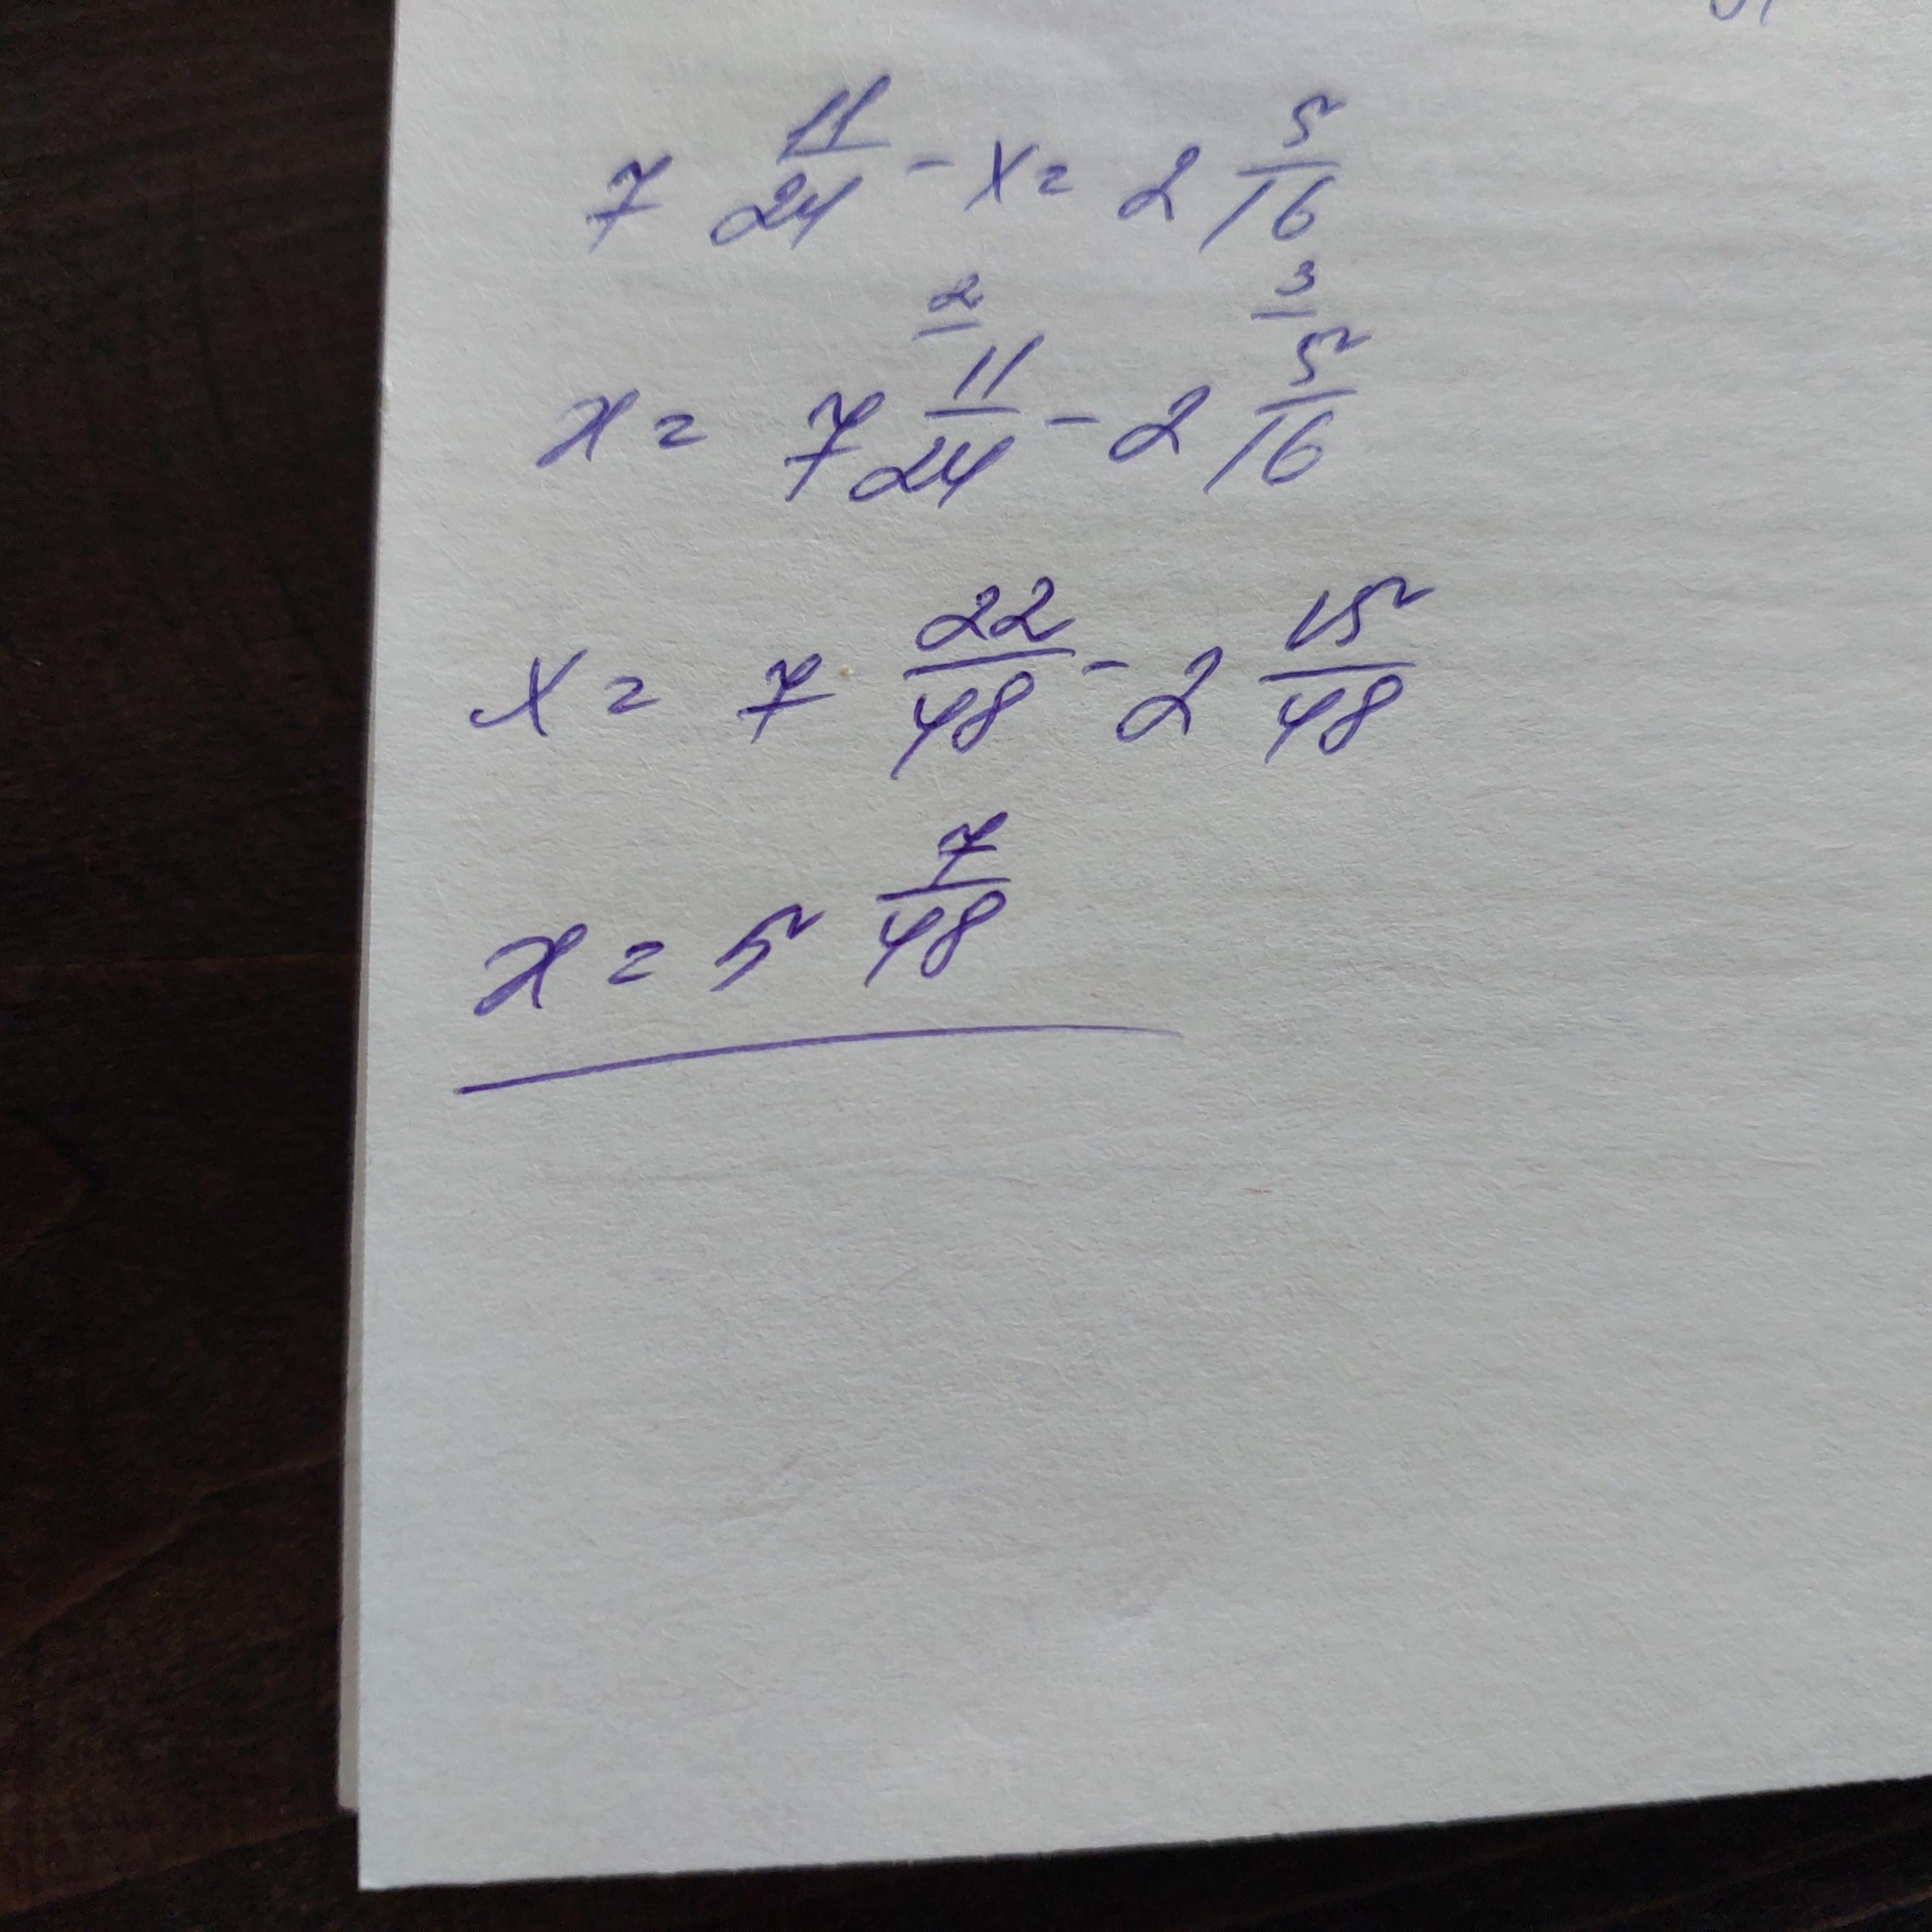 7 11/24 - x = 2 5/16
2 3
x = 7 11/24 - 2 5/16
x = 7 22/48 - 2 15/48
x = 5 7/48